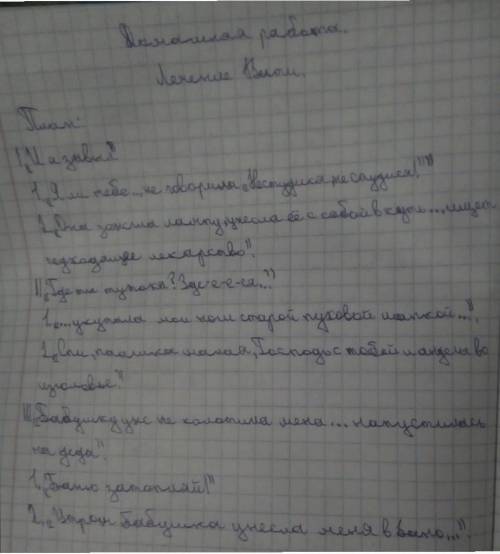 Домашняя работа.
Лечение Вити.
План:
I. „И азвка"
1. „Я ли тебе... не говорила, „Не студися, не студися!""
2. „Она зажгла лампу, унесла её с собой в куть... ищет
подходящее лекарство".
II. „Где ты тутока? Здо-е-е-ся..."
1. „...укутала мои ноги старой пуховой шалкой..."
2. „Спи, пташка малая, Господь с тобой и анделы во
изголовье."
III. „Бабушка уже не колотила меня... напустилась
на деда".
1. „Баню затопляй!"
2. „Утром бабушка унесла меня в баню,..."